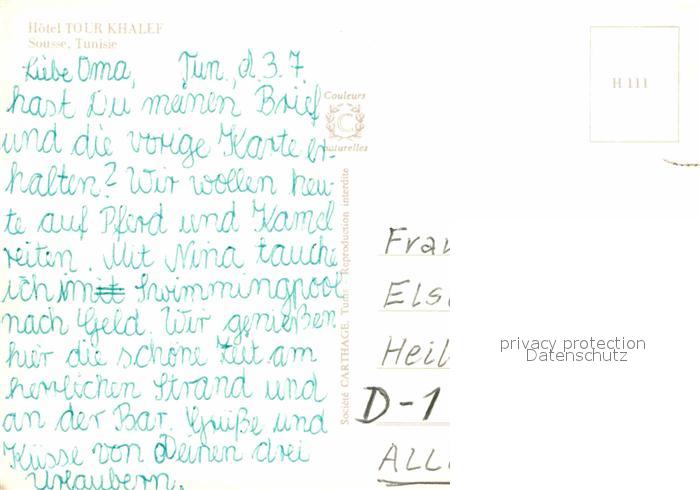 Hôtel TOUR KHALEF
Sousse, Tunisie
Liebe Oma, Tun., d. 3. 7.
hast Du meinen Brief
und die vorige Karte er-
halten? Wir wollen heu-
te auf Pferd und Kamel
reiten. Mit Nina tauche
ich im Swimmingpool
nach Geld. Wir genießen
hier die schöne Zeit am
herrlichen Strand und
an der Bar. Grüße und
Küsse von Deinen drei
Urlaubern.
Couleurs
C
naturelles
Société CARTHAGE, Tunis - Reproduction interdite
H 111
Frau
Els
Heil
D-1
ALL
privacy protection
Datenschutz